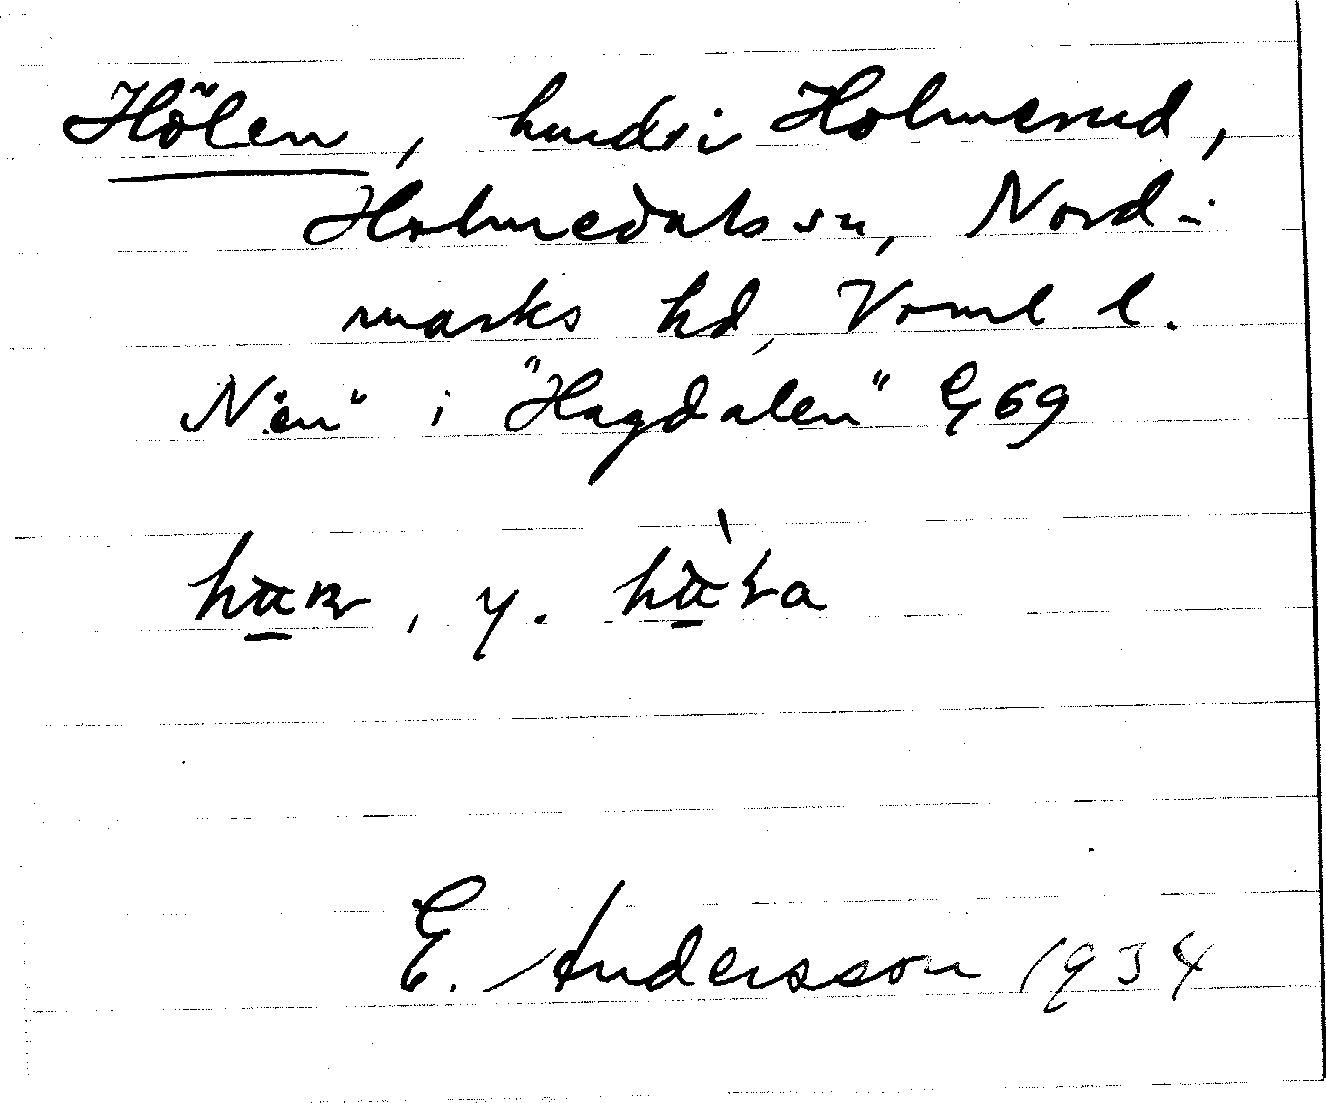 Hölen, hmdsi Holmerud,
Holmedals sn, Nord-
marks hd, Vrml l.
N. en" i "Hagdalen" E 69
y.
E. Andersson 1934